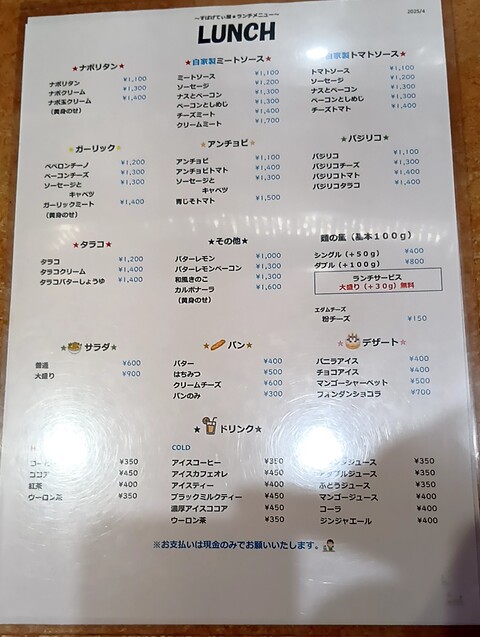 ～すぱげてぃ屋★ランチメニュー～
2025/4
LUNCH
★ナポリタン★
ナポリタン ¥1,100
ナポクリーム ¥1,300
ナポ玉クリーム ¥1,400
(黄身のせ)
★自家製ミートソース★
ミートソース ¥1,100
ソーセージ ¥1,200
ナスとベーコン ¥1,300
ベーコンとしめじ ¥1,300
チーズミート ¥1,400
クリームミート ¥1,700
★自家製トマトソース★
トマトソース ¥1,100
ソーセージ ¥1,200
ナスとベーコン ¥1,300
ベーコンとしめじ ¥1,300
チーズトマト ¥1,400
★ガーリック★
ペペロンチーノ ¥1,200
ベーコンチーズ ¥1,300
ソーセージと ¥1,300
キャベツ
ガーリックミート ¥1,400
(黄身のせ)
★アンチョビ★
アンチョビ ¥1,100
アンチョビトマト ¥1,400
ソーセージと ¥1,300
キャベツ
青じそトマト ¥1,500
★バジリコ★
バジリコ ¥1,100
バジリコチーズ ¥1,300
バジリコトマト ¥1,400
バジリコタラコ ¥1,400
★タラコ★
タラコ ¥1,200
タラコクリーム ¥1,400
タラコバターしょうゆ ¥1,400
★その他★
バターレモン ¥1,000
バターレモンベーコン ¥1,300
和風きのこ ¥1,300
カルボナーラ ¥1,600
(黄身のせ)
麺の量（基本１００ｇ）
シングル（＋５０ｇ） ¥400
ダブル（＋１００ｇ） ¥800
ランチサービス
大盛り（＋３０ｇ）無料
エダムチーズ
粉チーズ ¥150
★サラダ★
普通 ¥600
大盛り ¥900
★パン★
バター ¥400
はちみつ ¥500
クリームチーズ ¥600
パンのみ ¥300
★デザート★
バニラアイス ¥400
チョコアイス ¥400
マンゴーシャーベット ¥500
フォンダンショコラ ¥700
★ドリンク★
¥350
ココア ¥450
紅茶 ¥400
ウーロン茶 ¥350
COLD
アイスコーヒー ¥350
アイスカフェオレ ¥450
アイスティー ¥400
ブラックミルクティー ¥450
濃厚アイスココア ¥450
ウーロン茶 ¥350
ジュース ¥350
プルジュース ¥350
ぶどうジュース ¥350
マンゴージュース ¥400
コーラ ¥400
ジンジャエール ¥400
※お支払いは現金のみでお願いいたします。